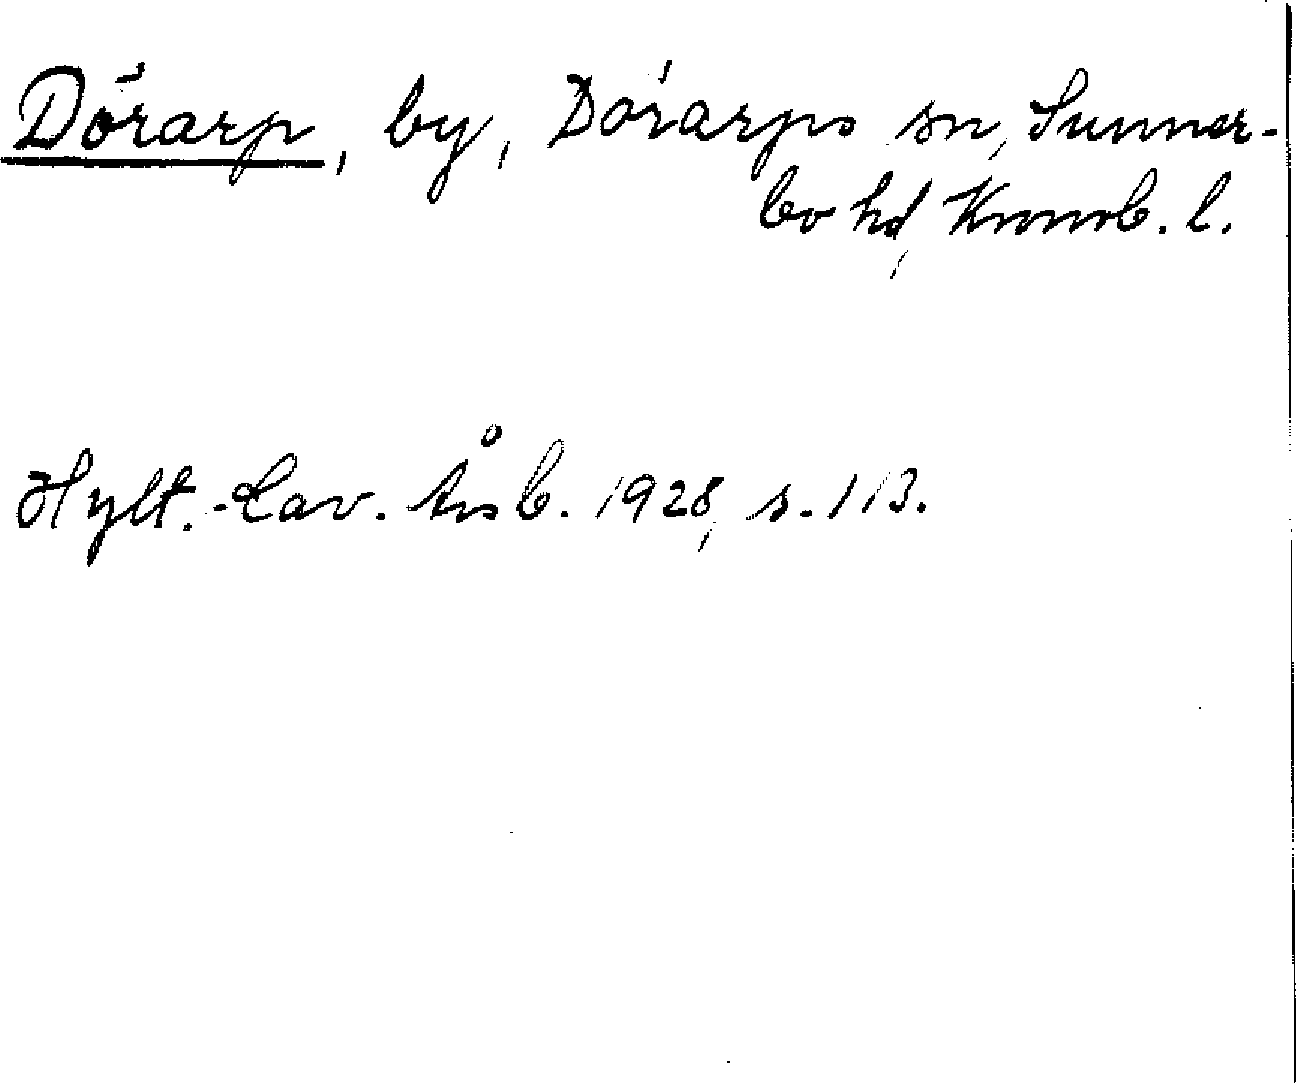 Dörarp, by, Dörarps sn, Sunner-
bo hd, Kronob. l.
Hylt.-Cav. Årsb. 1928, s. 113.